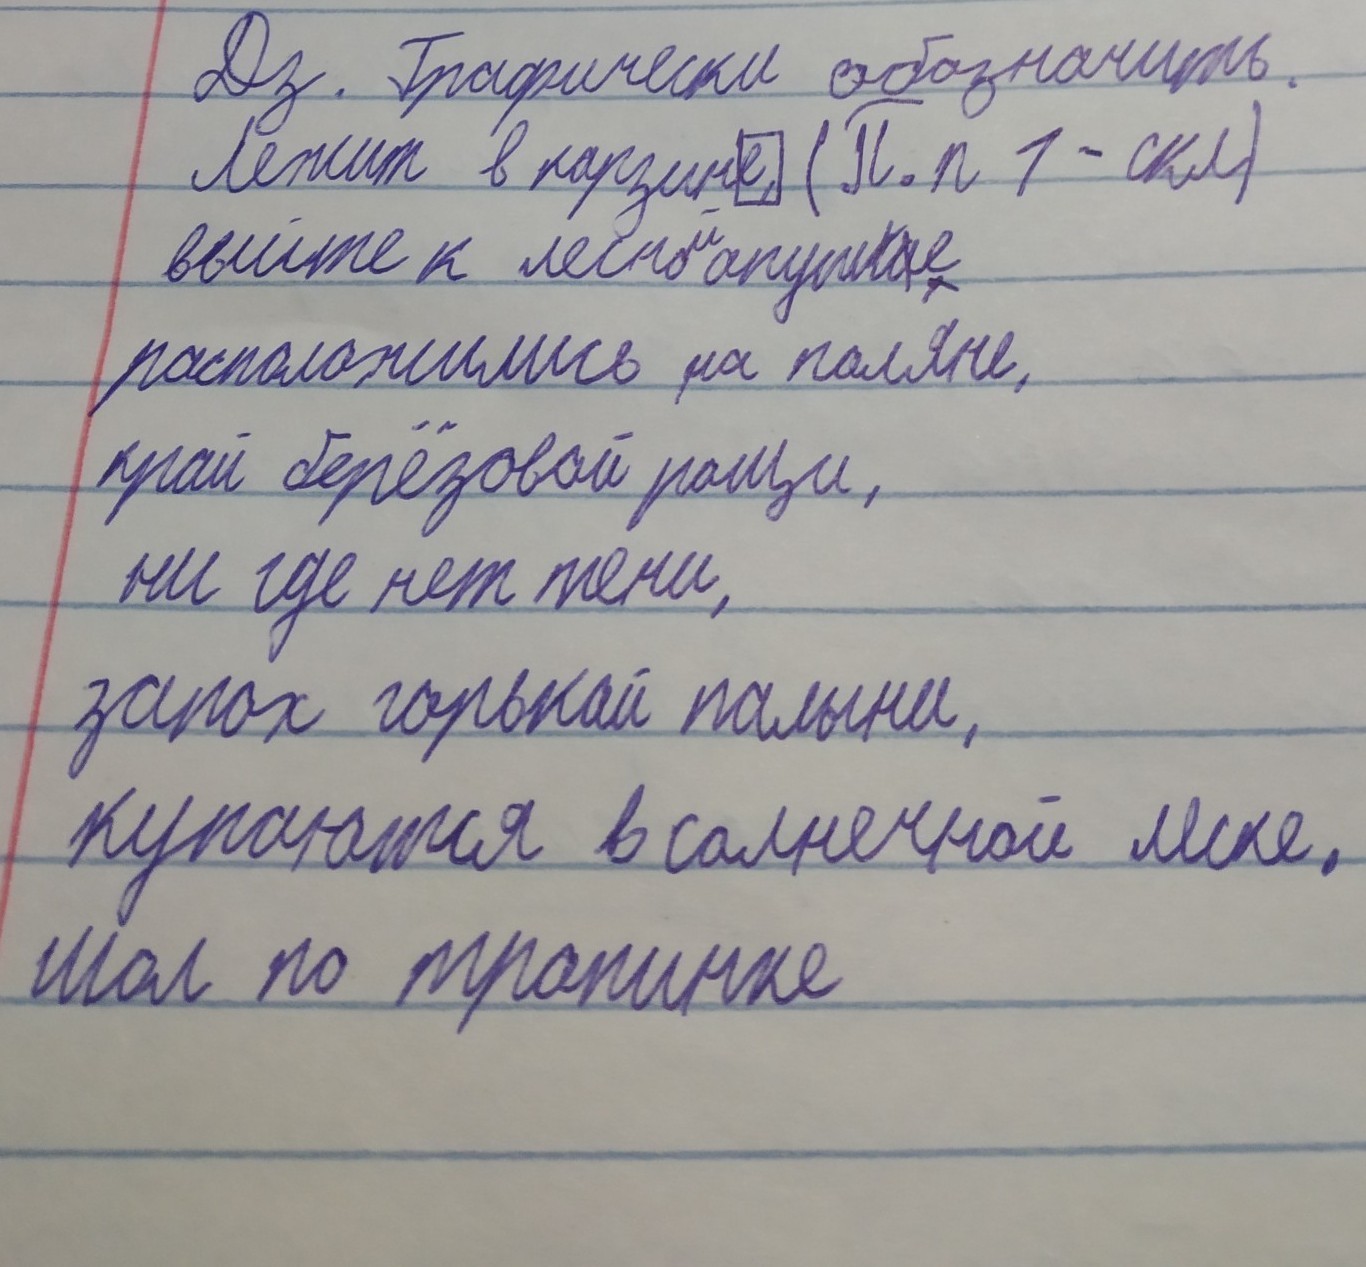 Дз. Графически обозначить.
Лежит в карзине, (П. п 1 - скл)
выйте к лесной апушке
расположились на поляне,
край берёзовой рощи,
ни где нет тени,
запох горькой палыни,
купаются в солнечной леске.
Шол по тропинке